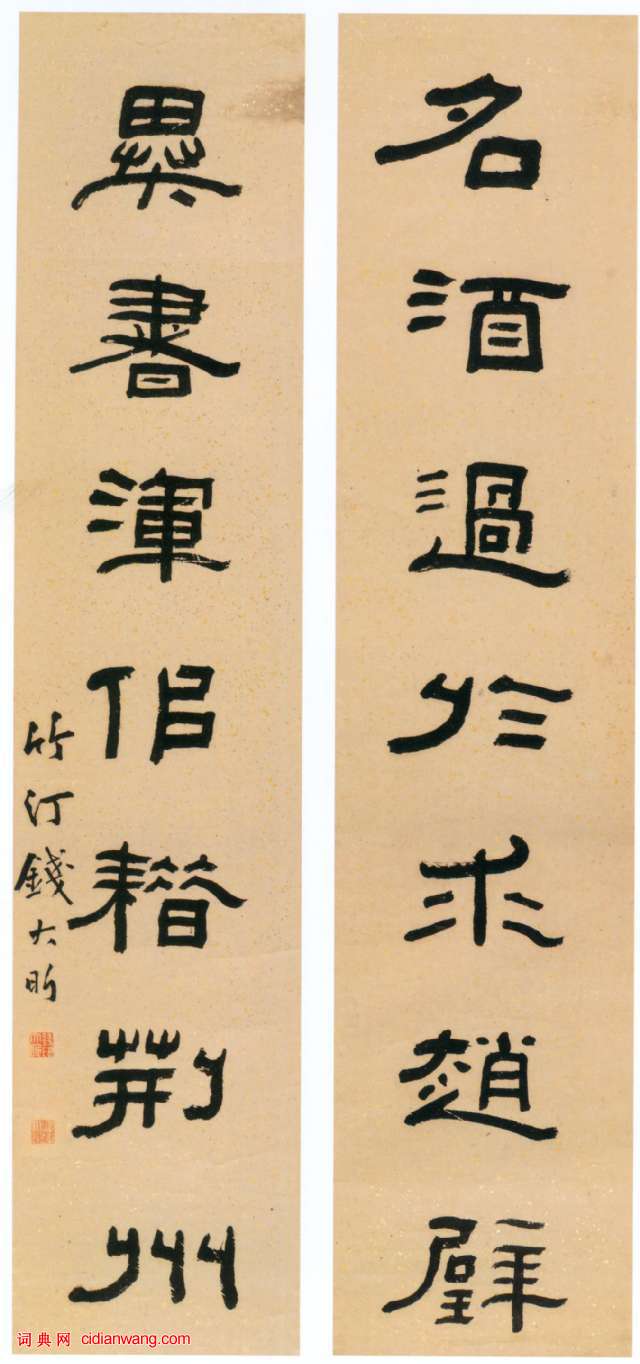 名酒過於求趙璧
異書渾佀耤荊州
竹汀錢大昕
词典网 cidianwang.com